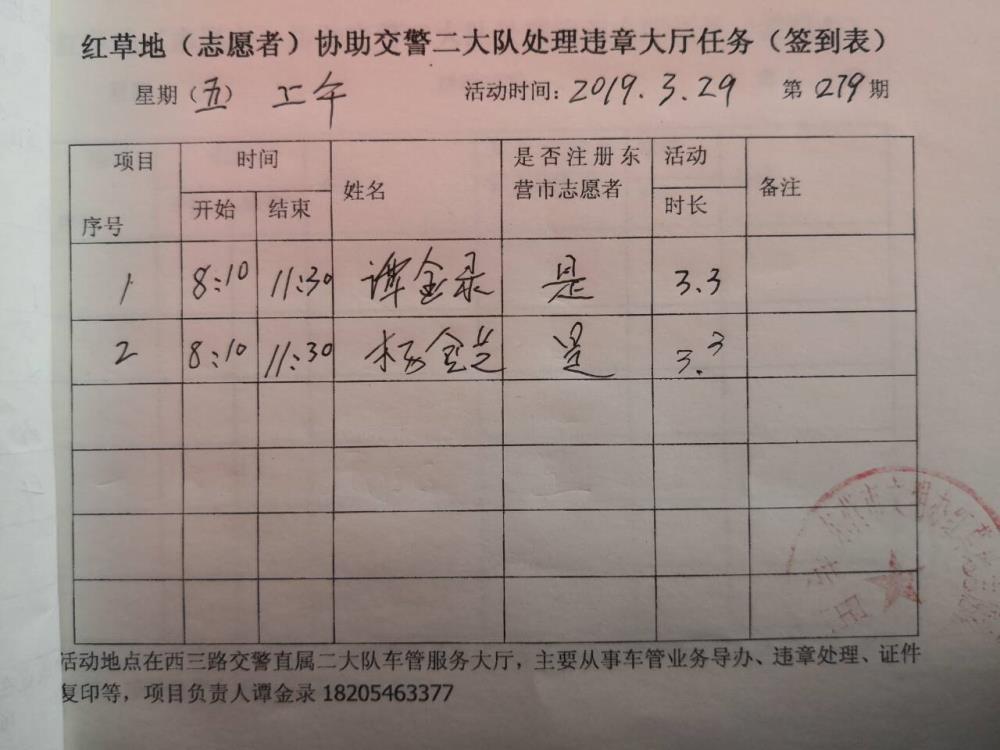 红草地（志愿者）协助交警二大队处理违章大厅任务（签到表）
星期（五） 上午 活动时间：2019.3.29 第 279 期
项目 时间 姓名 是否注册东营市志愿者 活动时长 备注
序号 开始 结束
1 8:10 11:30 谭金录 是 3.3
2 8:10 11:30 杨金芝 是 3.3
活动地点在西三路交警直属二大队车管服务大厅，主要从事车管业务导办、违章处理、证件
复印等，项目负责人谭金录 18205463377